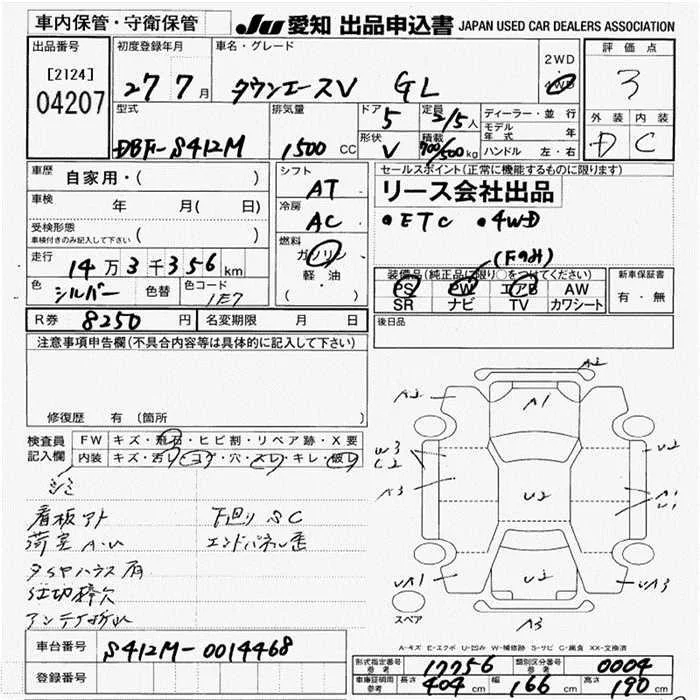 車内保管・守衛保管
JU 愛知 出品申込書 JAPAN USED CAR DEALERS ASSOCIATION
出品番号
[2124]
04207
初度登録年月
27 7月
車名・グレード
タウンエースV GL
2WD
4WD
評価点
3
外装 内装
D C
型式
DBF-S412M
排気量
1500 CC
ドア
5
形状
V
定員
2/5人
積載
700/500kg
ディーラー・並行
モデル年式 年
ハンドル 左・右
車歴
自家用・( )
車検 年 月( 日)
受検形態
車検付きのみ記入して下さい ( )
走行
14万3千356km
色
シルバー
色替
色コード
1E7
シフト
AT
冷房
AC
燃料
ガソリン
軽・油
( )
セールスポイント(正常に機能するものに限ります)
リース会社出品
•ETC •4WD
(Fのみ)
装備品(純正品に限り○をつけてください)
PS PW エアB AW
SR ナビ TV カワシート
新車保証書
有・無
R券 8250円
名変期限 月 日
後日品
注意事項申告欄(不具合内容等は具体的に記入して下さい)
修復歴 有(箇所 )
検査員記入欄
FW キズ・飛石・ヒビ割・リペア跡・X要
内装 キズ・汚レ・コゲ・穴・スレ・キレ・破レ
シミ
看板アト
下回りSC
荷室A.U
エンドパネル歪
タイヤハウス有
仕切棒欠
アンテナ折れ
A2
A2
A1
W3
C2
U2
A3
U2
A1
U1
UA1
U2
UA3
A3
スペア
A-キズ E-エクボ U-凹み W-補修跡 S-サビ C-腐食 XX-交換済
車台番号 S412M-0014468
登録番号
形式指定番号 参考 17756
類別区分番号 参考 0004
車庫証明用 参考 長さ 404 cm 幅 166 cm 高さ 190 cm